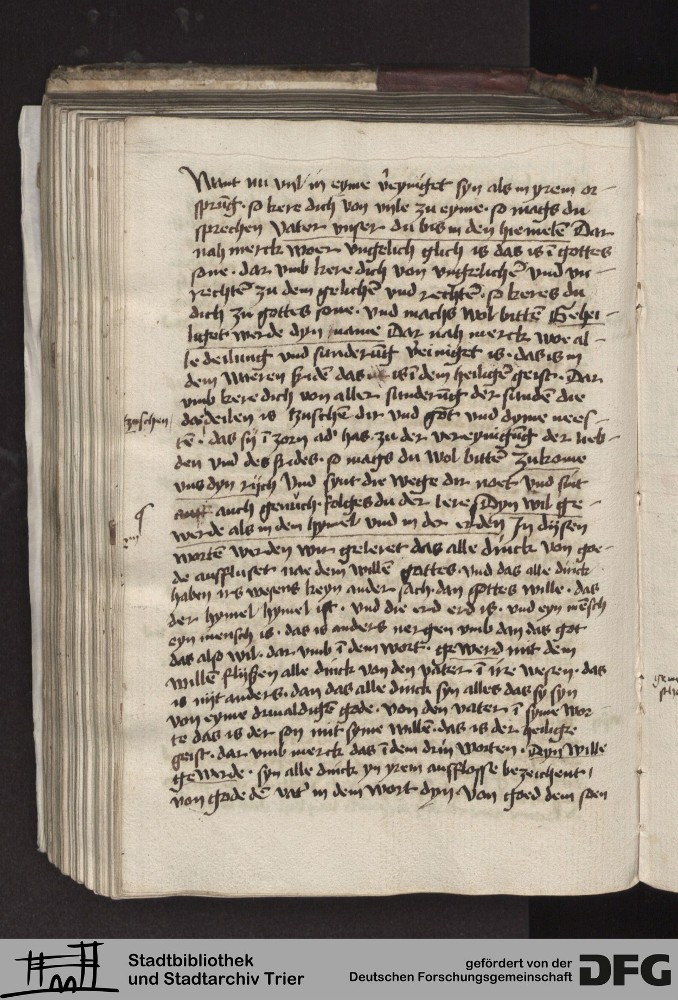 Want nu vnl in eyme v̓eyniget syn als in yrem or-
sprūg. so kere dich von vnle zu eyme. so mags du
sprechen Vater vnser du bis in den hiemelē Dar
nah merck woer vngelich glich is das is ī gottes
sone. dar vmb kere dich von vngelichē vnd vn-
rechtē zu dem gelichē vnd rechtē. so keres du
dich zu gottes sone. vnd machs wol bittē Gehei-
liget werde dyn name Dar nah merck woe al-
le deilung vnd sunderūg v̓einiget is. das is in
dem waeren fridē das is ī dem heiligē geist. Dar
vmb kere dich von aller sunderūg der sunden die
da deilen is tzuschē dir vnd got vnd dyme nees-
tzuschen
tē. das sij ī zorn ad' has. zu der vereynigūg der lieb-
den vnd des frides. so mags du wol bittē Zukome
vns dyn rijch Vnd synt die wege dir noet vnd sint
auch genūch. folges du der lere Dyn wil ge-
werde als in dem hymel vnd in der erden In dijsen
wortē werden wir geleret das alle dinck von goe-
de ausfluset nae dem willē gottes. vnd das alle dinck
haben irs wesens keyn ander sach. dan gottes wille. das
der hymel hymel ist. vnd die erd erd is. vnd eyn mēsch
eyn mensch is. das is anders nergen vmb dan das got
das also wil. dar vmb ī dem wort. gewerd mit dem
willē flijssen alle dinck von den vater ī ire wesen. das
is nijt anders. dan das alle dinck syn alles das sy syn
von eyme driualdigē gode. von den vater ī syme wor-
te das is der son mit syme willē. das is der heiligre
geist. dar vmb merck das ī dem drin worten. Dyn wille
gewerde. syn alle dinck yn yrem ausflosse bezeichent,
von gode dē vat' in dem wort dyn von goed dem soen
Stadtbibliothek
und Stadtarchiv Trier
gefördert von der
Deutschen Forschungsgemeinschaft
DFG